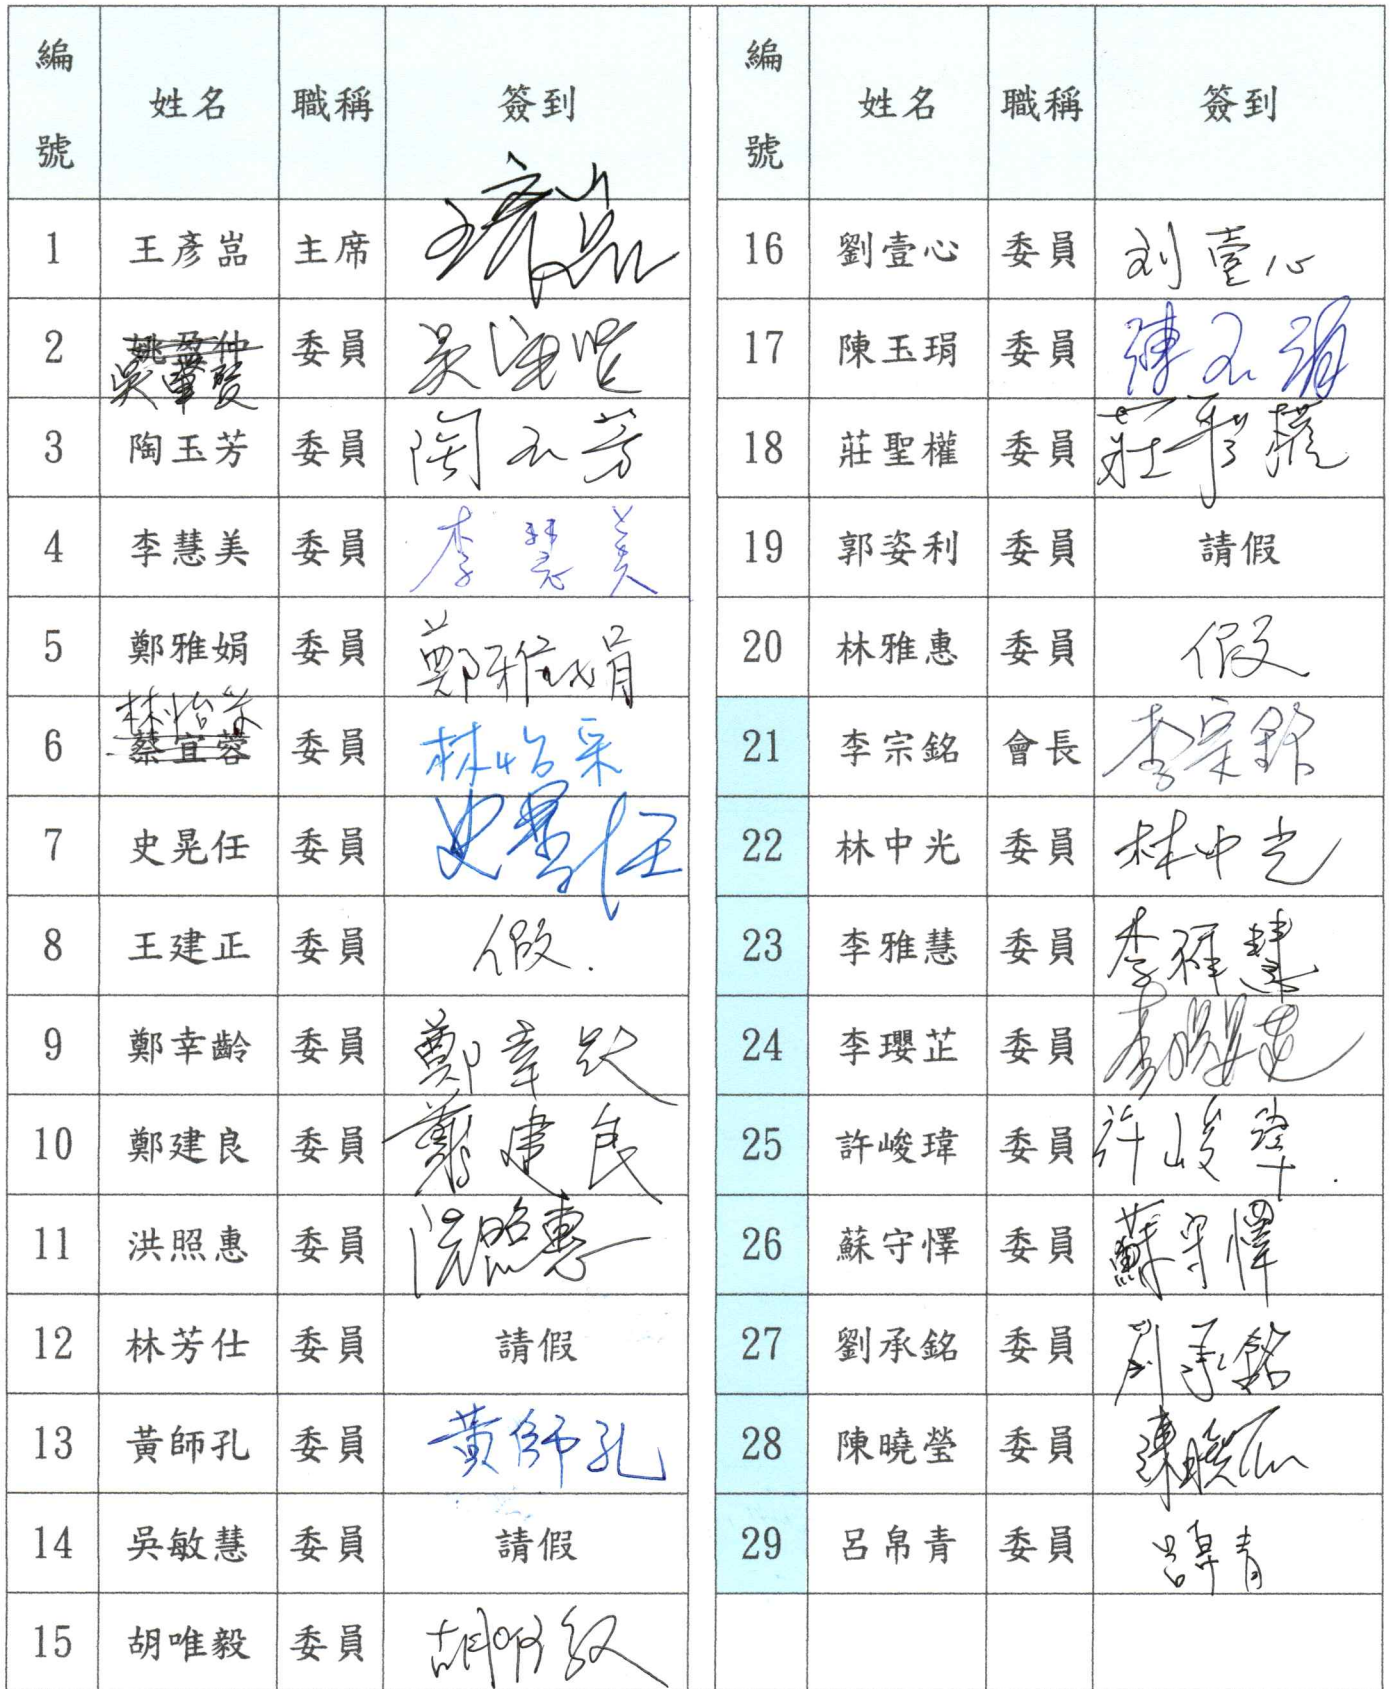 編號 姓名 職稱 簽到
1 王彥嵓 主席 王彥嵓
2 姚盈仲 委員
吳肇賢
3 陶玉芳 委員 陶玉芳
4 李慧美 委員 李慧美
5 鄭雅娟 委員 鄭雅娟
林怡采
6 蔡宜蓉 委員 林怡采
7 史晃任 委員 史晃任
8 王建正 委員 假.
9 鄭幸齡 委員 鄭幸齡
10 鄭建良 委員 鄭建良
11 洪照惠 委員 洪照惠
12 林芳仕 委員 請假
13 黃師孔 委員 黃師孔
14 吳敏慧 委員 請假
15 胡唯毅 委員 胡唯毅
編號 姓名 職稱 簽到
16 劉壹心 委員 刘壹心
17 陳玉琄 委員 陳玉琄
18 莊聖權 委員 莊聖權
19 郭姿利 委員 請假
20 林雅惠 委員 假
21 李宗銘 會長 李宗銘
22 林中光 委員 林中光
23 李雅慧 委員 李雅慧
24 李瓔芷 委員 李瓔芷
25 許峻瑋 委員 許峻瑋
26 蘇守懌 委員 蘇守懌
27 劉承銘 委員 劉承銘
28 陳曉瑩 委員 陳曉瑩
29 呂帛青 委員 呂帛青